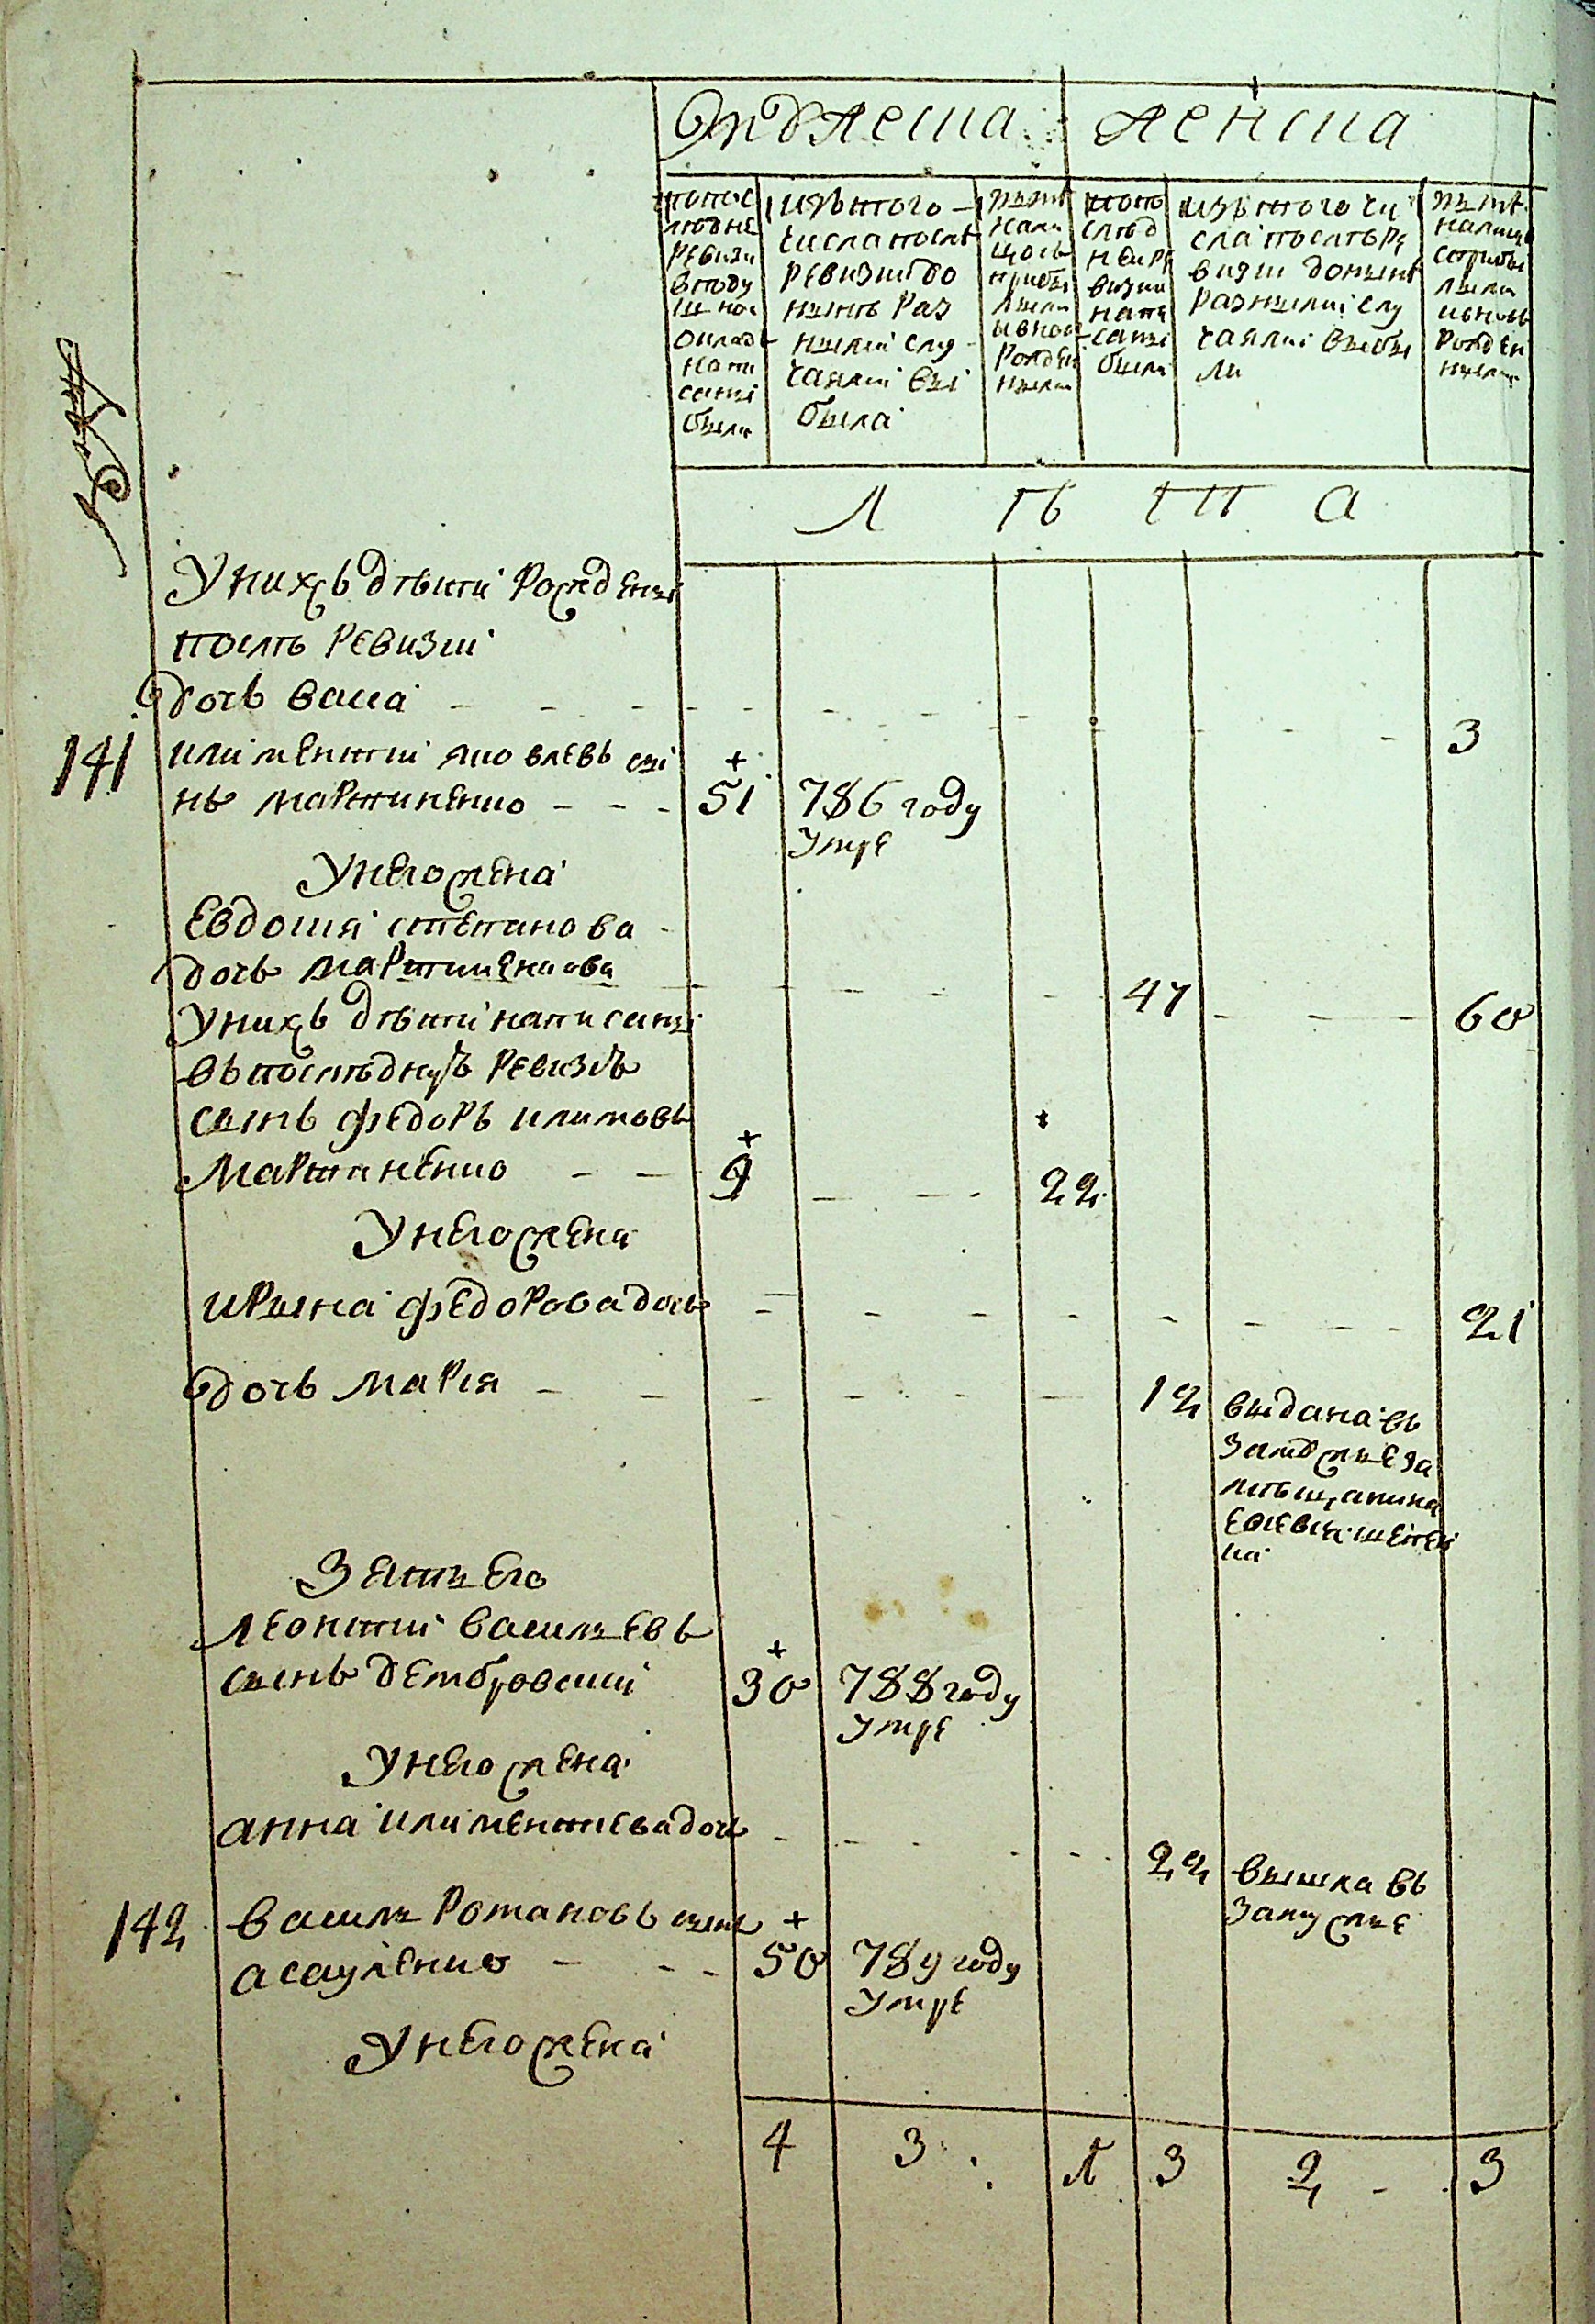 Мужеска
женска
По пос
лѣдне
ревизи
в поду
шном
окладѣ
напи
саны
были
изъ того
числа послѣ
ревизии до
нынѣ раз
ными слу
чаями вы
была
нынѣ
нали
цо съ
прибы
лыми
и вновь
рожден
ными
по по
слѣд
ней ре
визии
напи
саны
были
изъ того чи
сла послѣ ре
визии донынѣ
разными слу
чаями выбы
ли
нынѣ
налицо
с прибы
лыми
и вновь
рожден
ными
Л ѣ т а
У нихъ дѣти рожденны
послѣ ревизии
дочь васса 3
141 климентий яковлевъ сы
нъ мартиненко 51 786 году
умре
У него жена
Евдокия степанова
дочь мартиненкова 47 60
У нихъ дѣти написаны
въ последнюю ревизию
сынъ федоръ климовъ
мартиненко 9 22
У него жена
ирына федорова дочь 21
дочь мария 12 выдана въ
замужье за
мѣщанина
евсевия шепел
ка
Зять его
леонтий васильевъ
сынъ дембровский 30 788 году
умре
У него жена
анна климентиева дочь 22 вышла въ
замужье
142 василь романовъ сынъ
асауленко 50 789 году
умре
У него жена
4 3 1 3 2 3